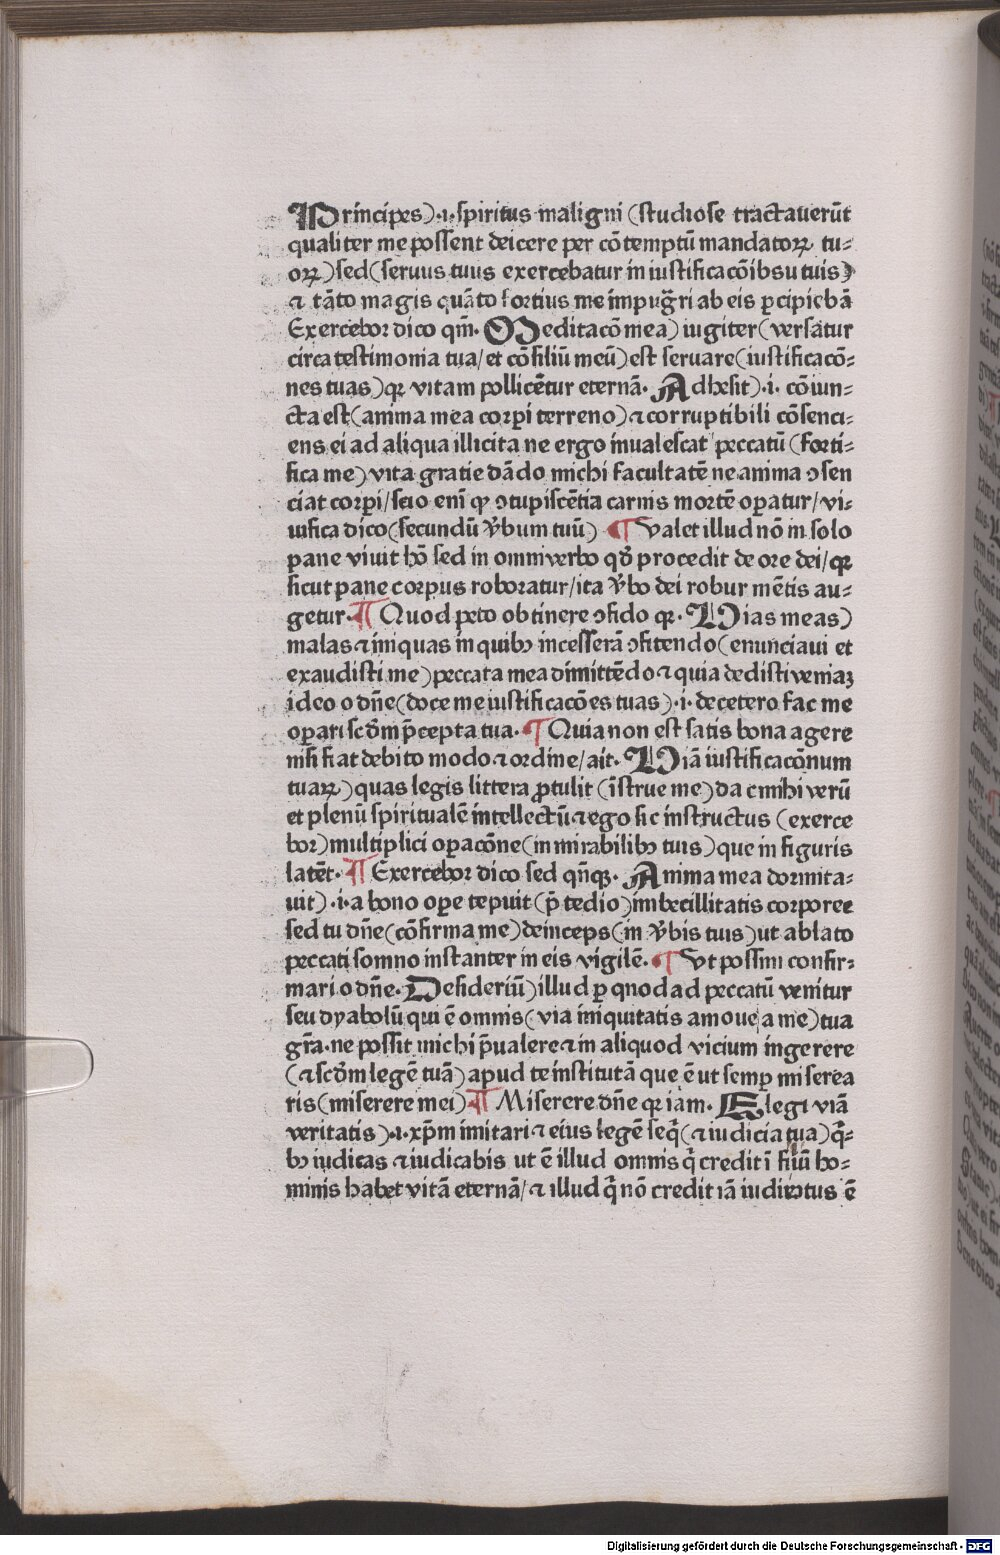 Principes).i. spiritus maligni (studiose tractauerūt
qualiter me possent deicere per cōtemptū mandatoꝝ tu⸗
oꝝ) sed (seruus tuus exercebatur in iustificacōibsu tuis)
⁊ tāto magis quāto fortius me impugr̄i ab eis ꝑcipiebā
Exercebor dico qm̄. Meditacō mea) iugiter (versatur
circa testimonia tua/ et cōsiliū meū) est seruare (iustificacō⸗
nes tuas) qꝛ vitam pollicētur eternā. Adhesit) .i. cōiun⸗
cta est (anima mea corpi terreno) ⁊ corruptibili cōsenci⸗
ens ei ad aliqua illicita ne ergo inualescat peccatū (forti⸗
fica me) vita gratie dādo michi facultatē ne anima ꝯsen
ciat corꝑi/ scio eni ꝙ ꝯcupiscētia carnis mortē oꝑatur/ vi⸗
uifica dico (secundū v̄bum tuū) ¶ Valet illud nō in solo
pane viuit hō sed in omni verbo qd̄ procedit de ore dei/ qꝛ
sicut pane corpus roboratur/ ita v̄bo dei robur mētis au⸗
getur. ¶ Quod peto obtinere ꝯfido qꝛ. Vias meas)
malas ⁊ iniquas in quibꝰ incesserā ꝯfitendo (enunciaui et
exaudisti me) peccata mea dimittēdo ⁊ quia dedisti veniaꝫ
ideo o dn̄e (doce me iustificacōes tuas) .i. de cetero fac me
oꝑari scd̄m p̄cepta tua. ¶ Quia non est satis bona agere
nisi fiat debito modo ⁊ ordine/ ait. Viā iustificacōnum
tuaꝝ) quas legis littera ꝓtulit (īstrue me) da em̄ihi verū
et plenū spiritualē intellectū ⁊ ego sic instructus (exerce
bor) multiplici oꝑacōne (in mirabilibꝰ tuis) que in figuris
latēt. ¶ Exercebor dico sed qn̄qꝫ. Anima mea dormita⸗
uit) .i. a bono oꝑe tepuit (p̄ tedio) imbecillitatis corporee
sed tu dn̄e (cōfirma me) deinceps (in v̄bis tuis) ut ablato
peccati somno instanter in eis vigilē. ¶ Vt possim confir⸗
mari o dn̄e. Desideriū) illud ꝑ quod ad peccatū venitur
seu dyabolū qui ē omnis (via iniquitatis amoue a me) tua
gr̄a. ne possit michi p̄ualere ⁊ in aliquod vicium ingerere
(⁊ scd̄m legē tuā) apud te institutā que ē ut semꝑ miserea
ris (miserere mei) ¶ Miserere dn̄e qꝛ iam. Elegi viā
veritatis) .i. xp̄m imitari ⁊ eius legē seq̄ (⁊ iudicia tua) q̄⸗
bꝰ iudicas ⁊ iudicabis ut ē illud omnis q̄ credit ī filiū ho⸗
minis habet vitā eternā/ ⁊ illud q̄ nō credit iā iudicatus ē
Digitalisierung gefördert durch die Deutsche Forschungsgemeinschaft - DFG